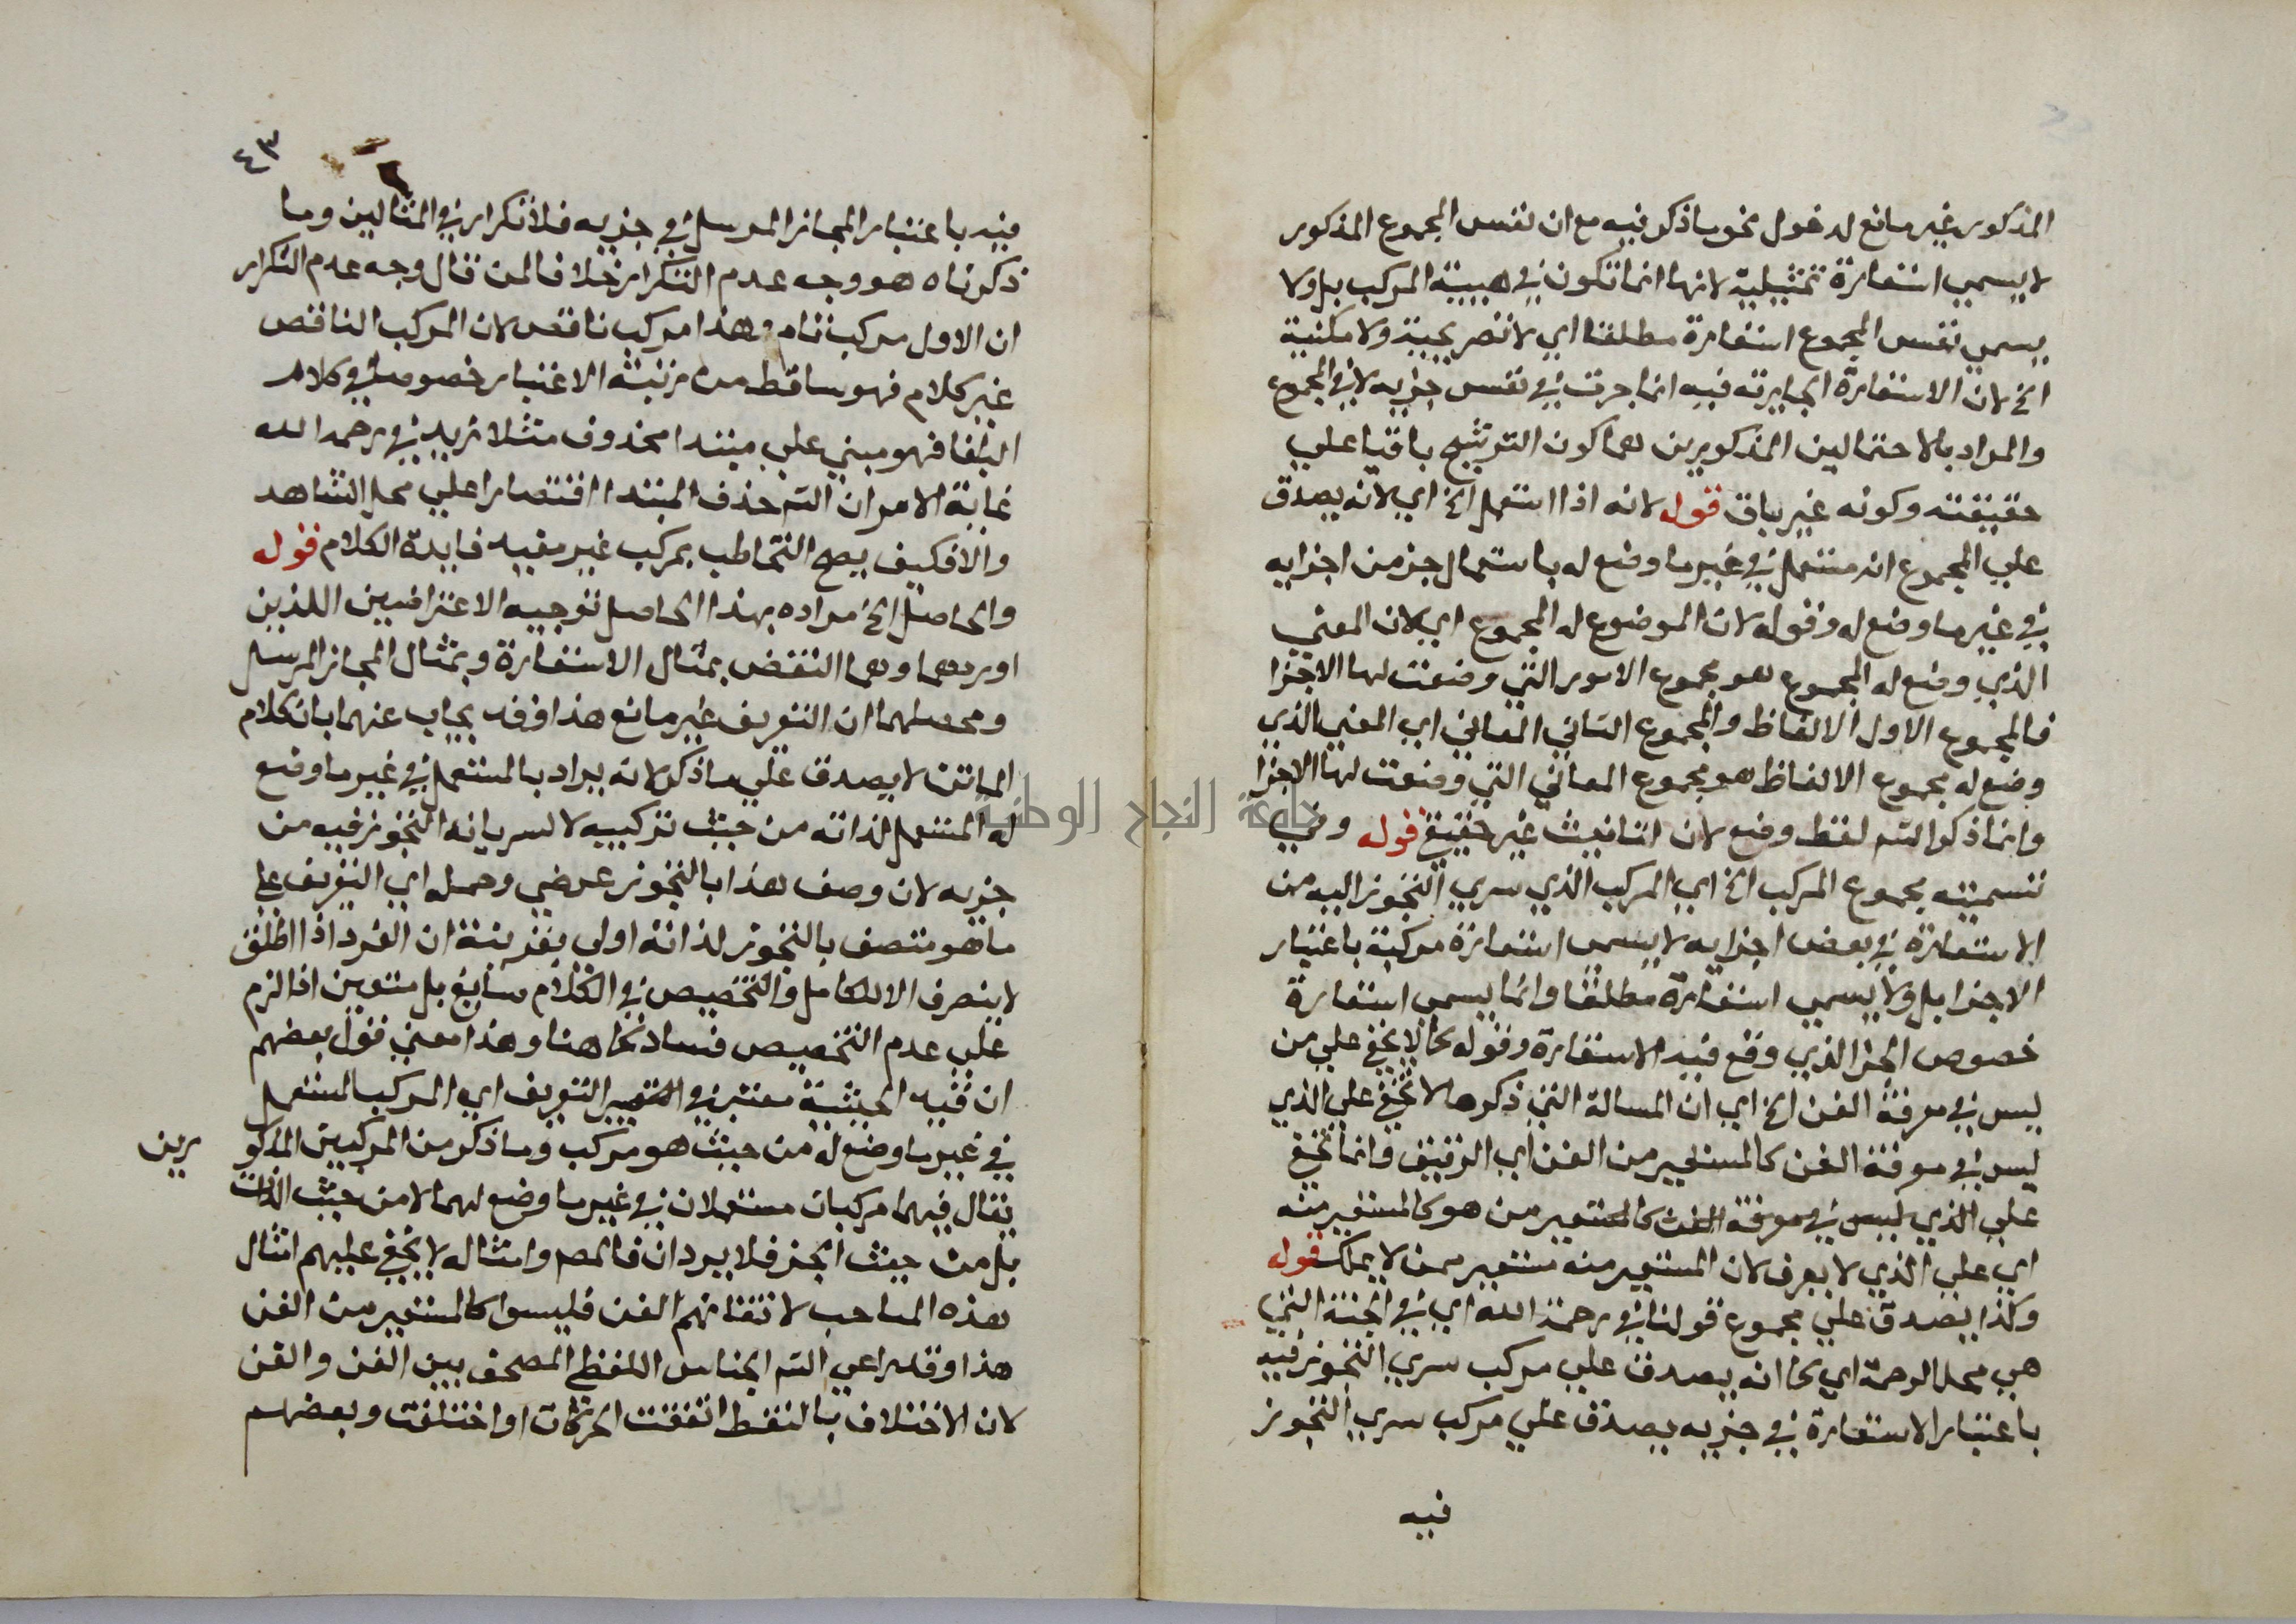 المذكور غير مانع لدخول نحو ما ذكر فيه مع ان نفس المجموع المذكور
لا يسمي استعارة تمثيلية لانها انما تكون في هيئة المركب بل ولا
يسمي نفس المجموع استعارة مطلقا اي لا تصريحية ولا مكنية
الخ لان الاستعارة الجارية فيه انما جرت في نفس جزايه لا في المجموع
والمراد بالاحتمالين المذكورين هما كون الترشيح باقيا علي
حقيقته وكونه غير باق قوله لانه اذا استعمل الخ اي لانه يصدق
علي المجموع انه مستعمل في غير ما وضع له باستعمال جز من اجزايه
في غير ما وضع له وقوله لان الموضوع له المجموع اي لان المعني
الذي وضع له المجموع هو مجموع الامور التي وضعت لها الاجزا
فالمجموع الاول الالفاظ والمجموع الثاني المعاني اي المعني الذي
وضع له مجموع الالفاظ هو مجموع المعاني التي وضعت لها الاجزا
وانما ذكر الشم لفظ وضع لان التانيث غير حقيقي قوله وفي
تسميته مجموع المركب الخ اي المركب الذي سري التجوز اليه من
الاستعارة في بعض اجزايه لا يسمي استعارة مركبة باعتبار
الاجزا بل ولا يسمي استعارة مطلقا وانما يسمي استعارة
خصوص الجز الذي وقع فيه الاستعارة وقوله كما لا يخفي علي من
ليس في معرفة الفن الخ اي ان المسالة التي ذكرها لا تخفي علي الذي
ليس في معرفة الفن كالمستعير من الفن اي الرقيق وانما تخفي
علي الذي ليس في معرفة الفن كالمستعير من هو كالمستعير منه
اي علي الذي لا يعرف لان المستعير منه مستعير ممن لا يملك قوله
وكذا يصدق علي مجموع قولنا في رحمة الله اي في الجنة التي
هي محل الرحمة اي كما انه يصدق علي مركب سري التجوز فيه
باعتبار الاستعارة في جزيه يصدق علي مركب سري التجوز
فيه
٤٣
فيه باعتبار المجاز المرسل في جزيه فلا تكرار في المثالين وما
ذكرناه هو وجه عدم التكرار خلافا لمن قال وجه عدم التكرار
ان الاول مركب تام وهذا مركب ناقص لان المركب الناقص
غير كلام فهو ساقط من مرتبة الاعتبار خصوصا في كلام
البلغا فهو مبني علي مبتدا محذوف مثلا زيد في رحمة الله
غاية الامر ان الشم حذف المبتدا اقتصارا علي محل الشاهد
والا فكيف يصح التخاطب بمركب غير مفيد فايدة الكلام قوله
والحاصل الخ مراده بهذا الحاصل توجيه الاعتراضين اللذين
اوردهما وهما النقض بمثال الاستعارة وبمثال المجاز المرسل
ومحصلهما ان التعريف غير مانع هذا وقد يجاب عنهما بان كلام
الماتن لا يصدق علي ما ذكر لانه يراد بالمستعمل في غير ما وضع
له المستعمل لذاته من حيث تركيبه لا لسريانه التجوز فيه من
جزيه لان وصف هذا بالتجوز عرضي وحمله اي التعريف علي
ما هو متصف بالتجوز لذاته اولي بقرينة ان الفرد اذا اطلق
لا ينصرف الا للكامل والتخصيص في الكلام سايغ بل متعين اذا لزم
علي عدم التخصيص فساد كما هنا وهذا معني قول بعضهم
ان قيد الحيثية معتبر في التعريف اي المركب المستعمل
في غير ما وضع له من حيث هو مركب وما ذكر من المركبين المذكو
رين
يقال فيهما مركبان مستعملان في غير ما وضع لهما لا من حيث الذات
بل من حيث الجز فلا يردان فالمص وامثاله لا يخفي عليهم امثال
هذه المباحث لاتقانهم الفن فليسوا كالمستعير من الفن
هذا وقد راعي الشم الجناس اللفظي المصحف بين الفن والقن
لان الاختلاف بالنقط اتفقت الحركات او اختلفت وبعضهم
جامعة النجاح الوطنية